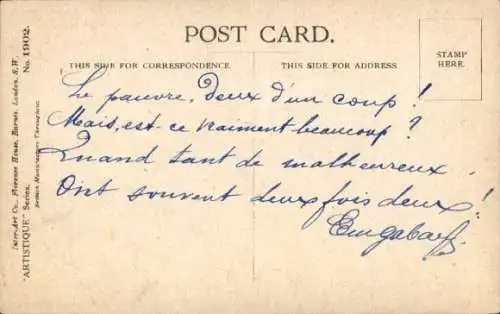 POST CARD.
THIS SIDE FOR CORRESPONDENCE.
THIS SIDE FOR ADDRESS.
STAMP
HERE.
Le pauvre, deux d'un coup!
Mais, est-ce vraiment beaucoup?
Quand tant de malheureux
Ont souvent deux fois deux!
Inter-Art Co., Florence House, Barnes, London, S.W.
"ARTISTIQUE" Series. No. 1902.
British Manufacture Throughout.